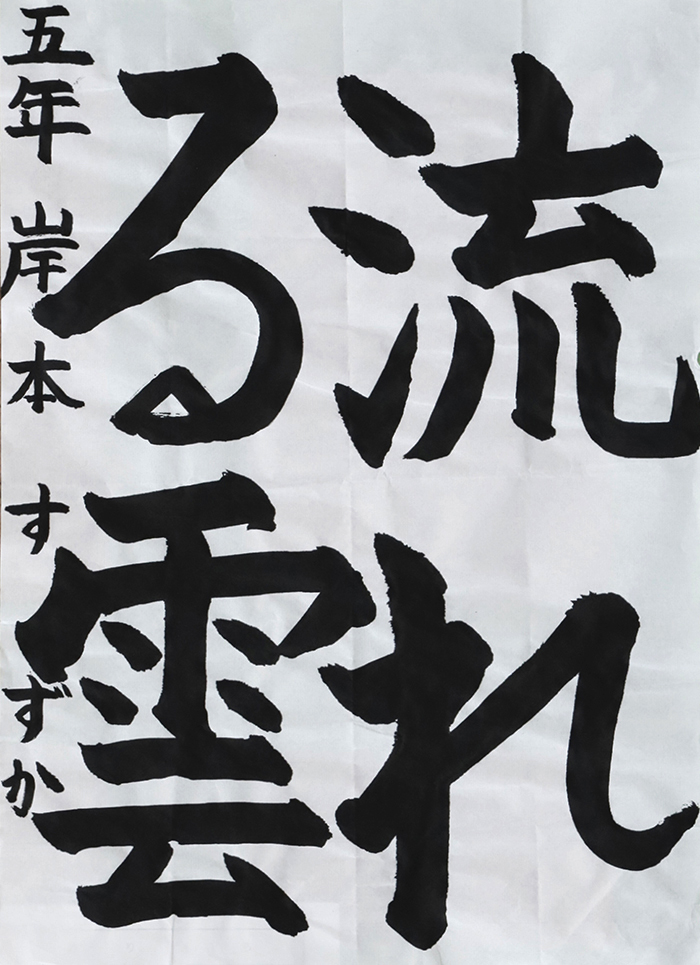 流れ
る雲
五年 岸本 すずか